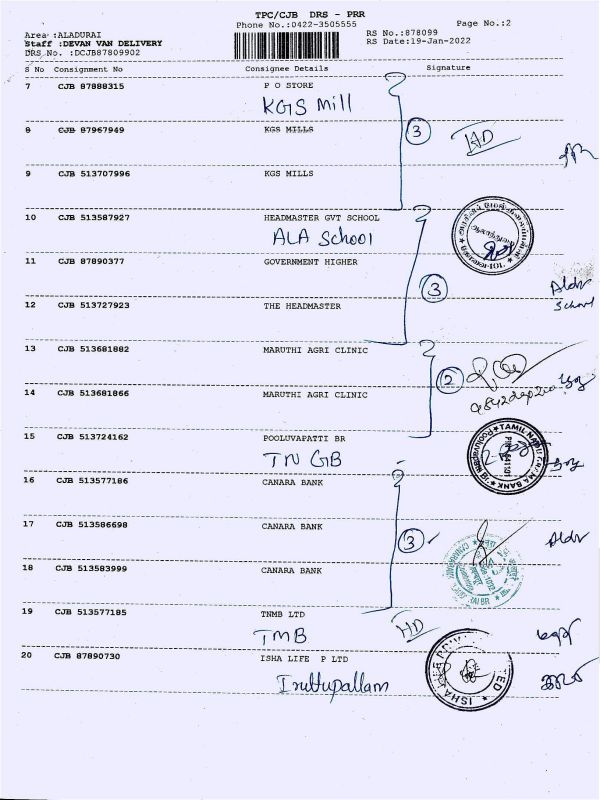 TPC/CJB DRS - PRR
Phone No.:0422-3505555
Page No.:2
Area :ALADURAI
RS No.:878099
Staff :DEVAN VAN DELIVERY
RS Date:19-Jan-2022
DRS No. :DCJB87809902
S No Consignment No Consignee Details Signature
7 CJB 87888315 P O STORE
KGS Mill
8 CJB 87967949 KGS MILLS
3
HD
9 CJB 513707996 KGS MILLS
10 CJB 513587927 HEADMASTER GVT SCHOOL
ALA School
11 CJB 87890377 GOVERNMENT HIGHER
3
Aldr
School
12 CJB 513727923 THE HEADMASTER
13 CJB 513681882 MARUTHI AGRI CLINIC
2
14 CJB 513681866 MARUTHI AGRI CLINIC
15 CJB 513724162 POOLUVAPATTI BR
TN GB
TAMIL NADU GRAMA BANK
16 CJB 513577186 CANARA BANK
17 CJB 513586698 CANARA BANK
3
Aldr
18 CJB 513583999 CANARA BANK
19 CJB 513577185 TNMB LTD
TMB
HD
20 CJB 87890730 ISHA LIFE P LTD
Iruttupallam